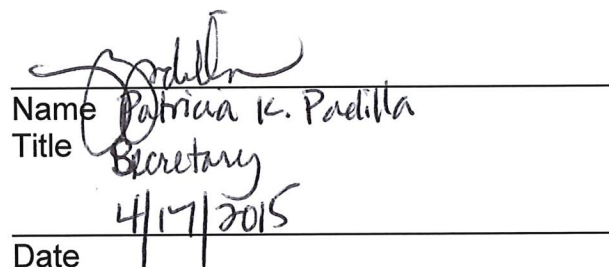 Padilla
Name Patricia K. Padilla
Title
Secretary
4/17/2015
Date